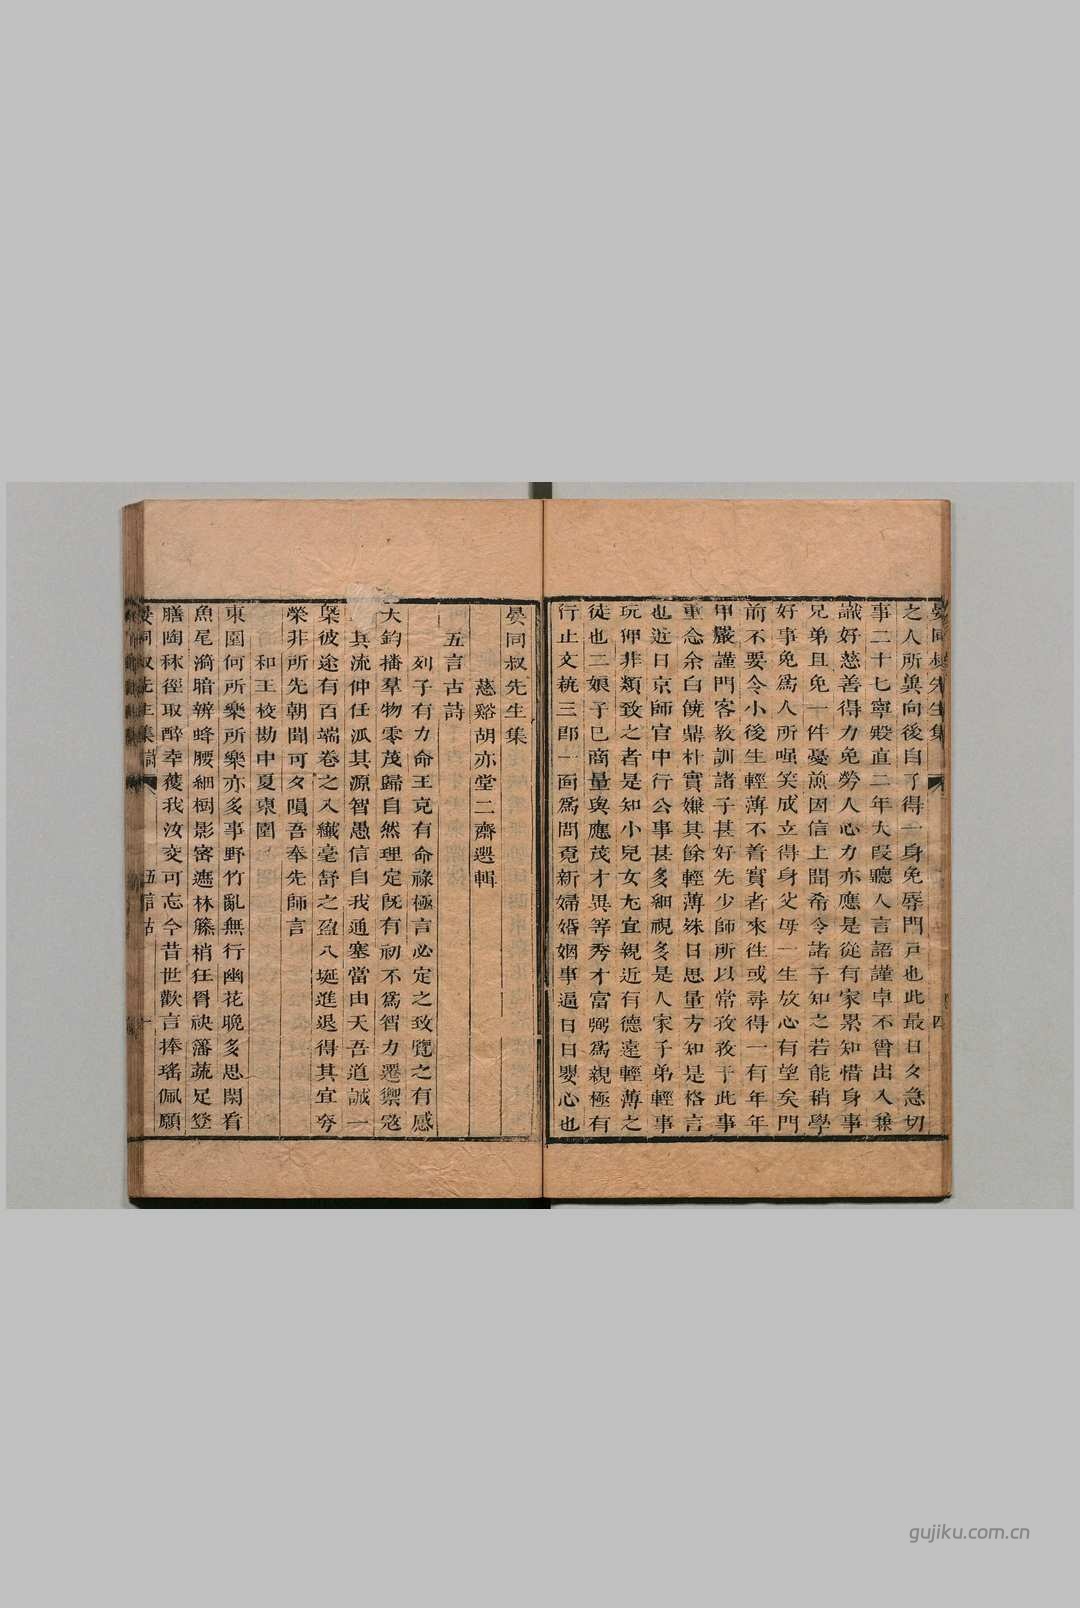 晏同叔先生集
四
之人所與向後自了得一身免辱門戸也此最日夕急切
事二十七寧殿直二年大段聽人言語謹卓不曾出入兼
識好慈善得力免勞人心力亦應是從有家累知惜身事
兄弟且免一件憂煎因信上聞希令諸子知之若能稍學
好事免爲人所嗤笑成立得身父母一生放心有望矣門
前不要令小後生輕薄不着實者來往或尋得一有年年
甲嚴謹門客教訓諸子甚好先少師所以常孜孜于此事
重念余白饒鼎杜實嫌其餘輕薄殊日思量方知是格言
也近日京師官中行公事甚多細視多是人家子弟輕事
玩狎非類致之者是知小兒女尤宜親近有德遠輕薄之
徒也二娘子已商量與應茂才異等秀才富弼爲親極有
行止文執三郎一面爲問覓新婦婚姻事逼日日嬰心也
晏同叔先生集
慈谿胡亦堂二齋選輯
五言古詩
列子有力命王充有命祿極言必定之致覽之有感
大鈞播羣物零茂歸自然理定旣有初不爲智力遷禦寇
其流仲任派其源智愚信自我通塞當由天吾道誠一
槩彼途有百端卷之入纖毫舒之盈八埏進退得其宜夸
榮非所先朝聞可夕隕吾奉先師言
和王校勘中夏東園
東園何所樂所樂亦多事野竹亂無行幽花晚多思閑看
魚尾滴暗辨蜂腰細樹影密遮林籐梢狂罥袂籓蔬足登
膳陶秫徑取醉幸獲我汝交可忘今昔世歡言捧瑤佩願
晏同叔先生集
五言古
一
gujiku.com.cn